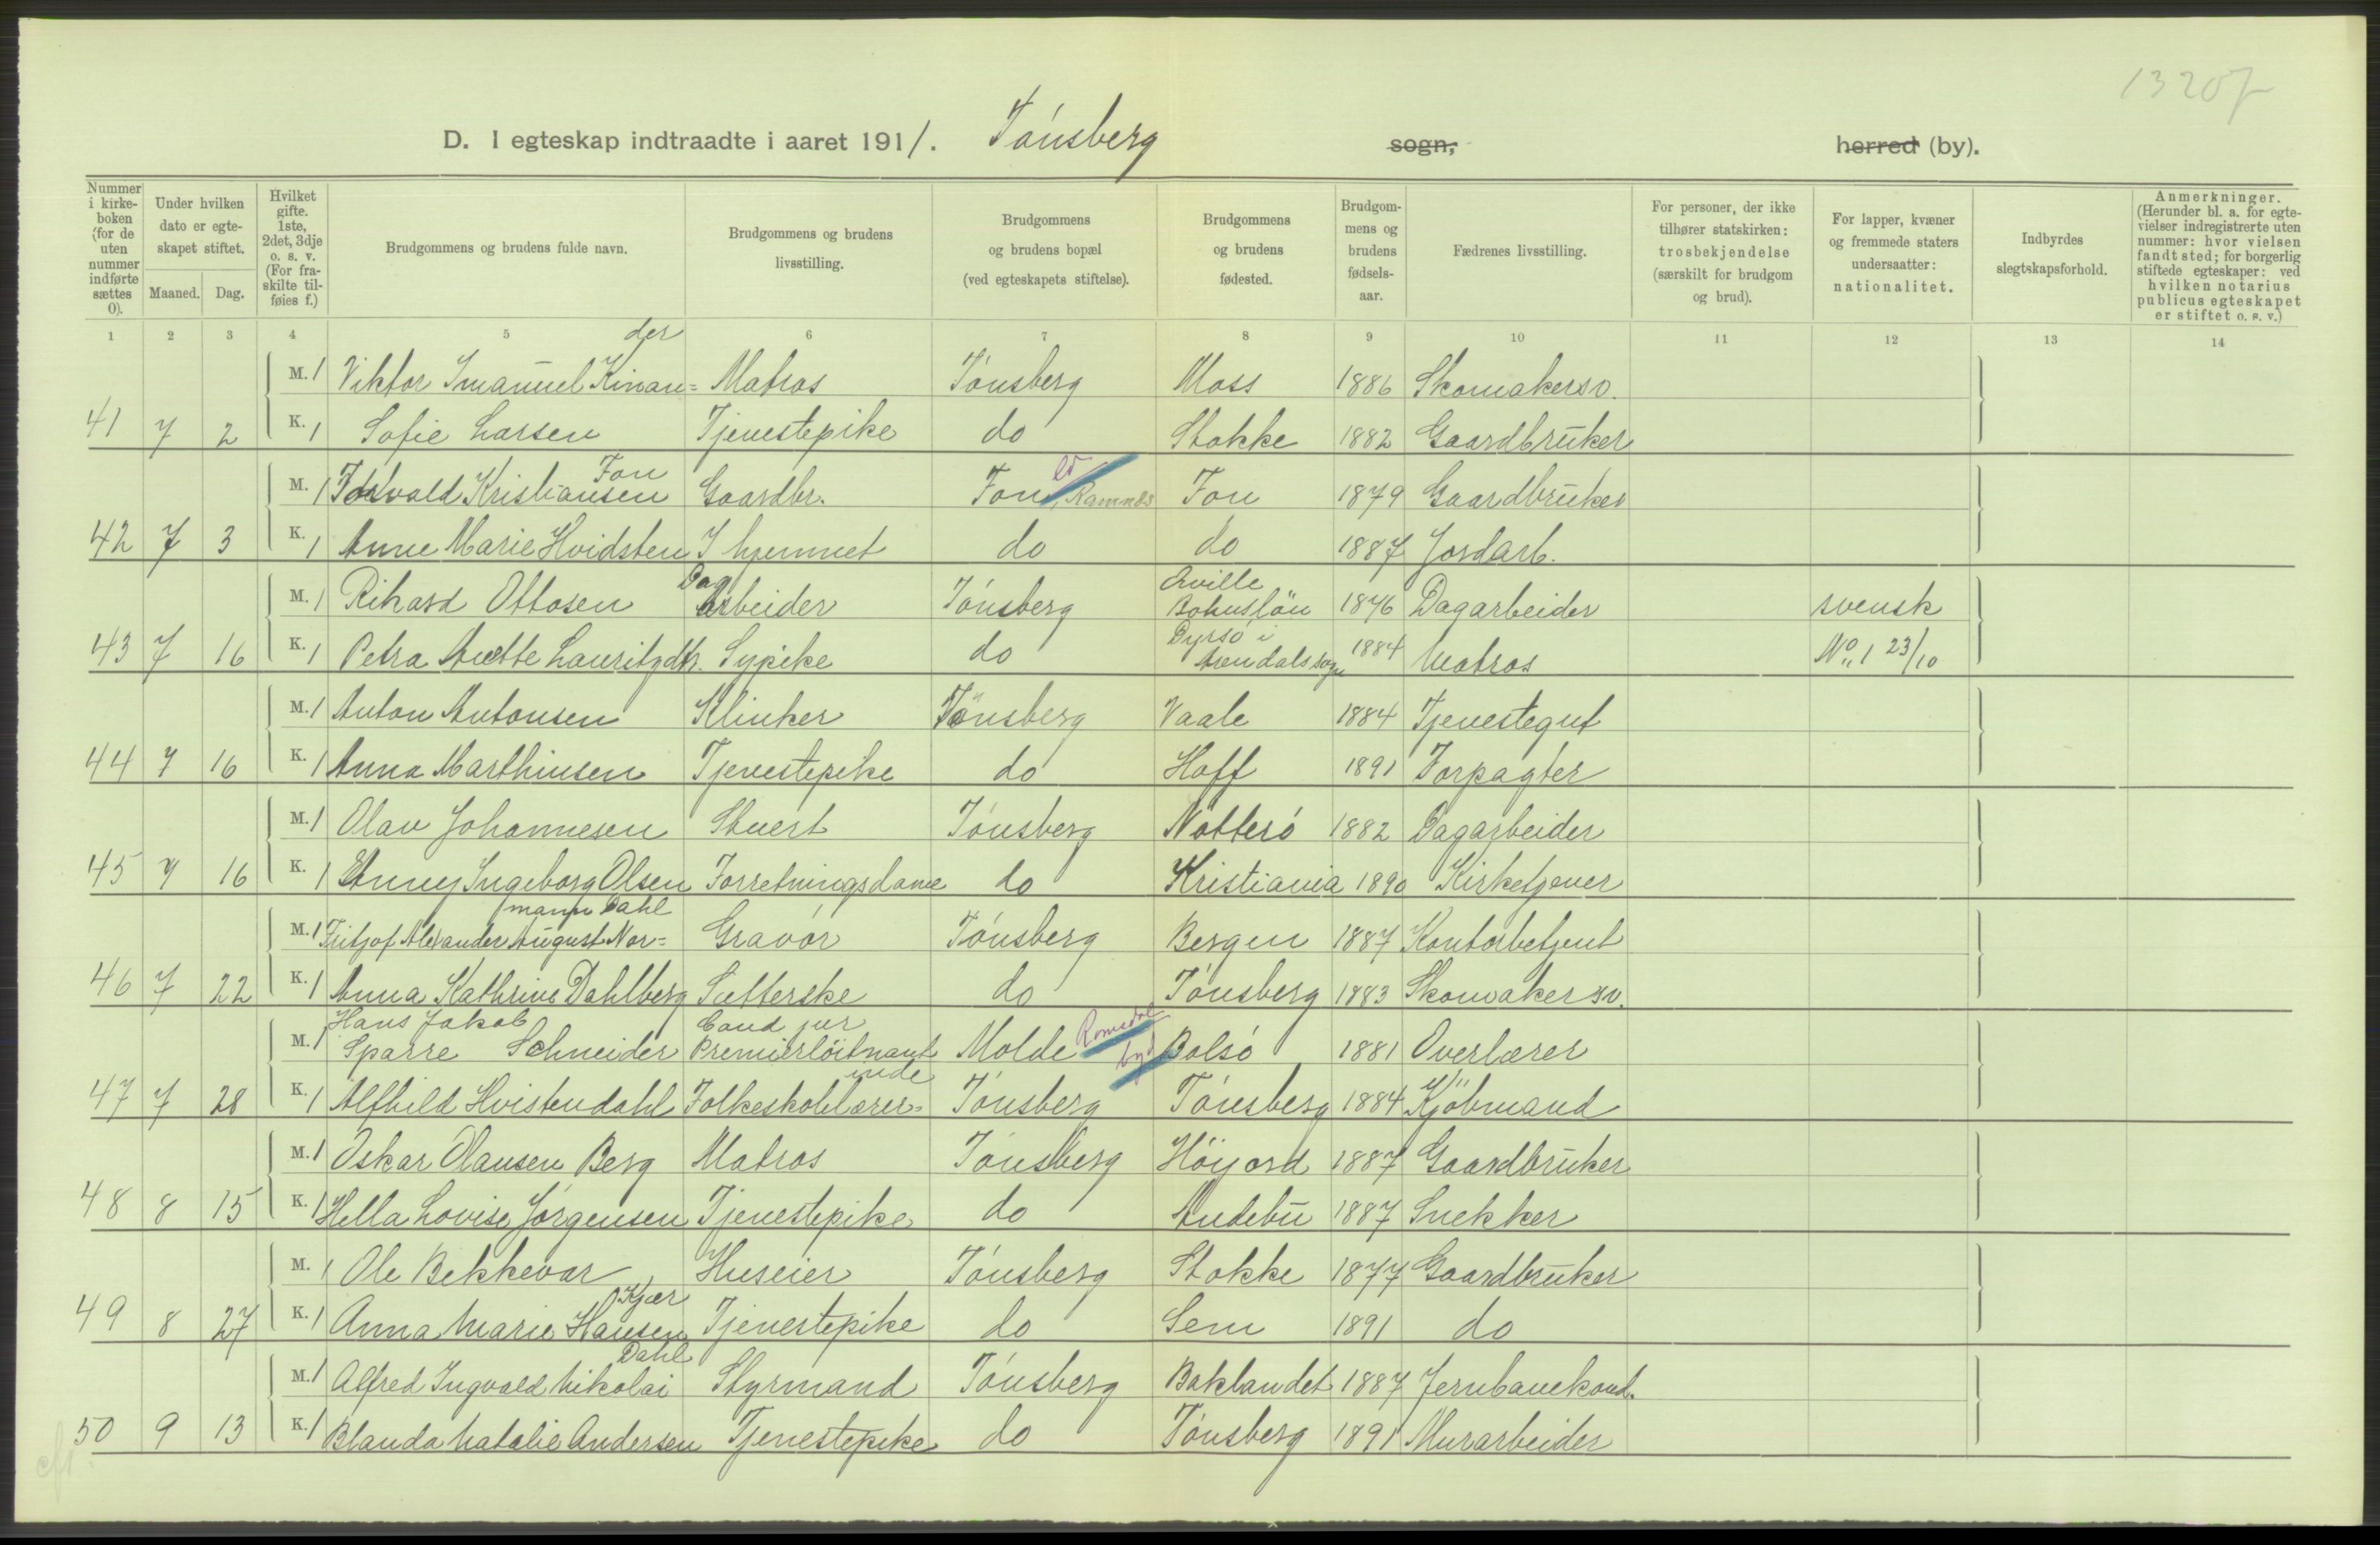 13207
D. I egteskap indtraadte i aaret 1911. Tónsberg sogn, herred (by).
Nummer i kirkeboken (for de uten nummer indførte sættes 0).
Under hvilken dato er egteskapet stiftet. Maaned. Dag.
Hvilket gifte. 1ste, 2det, 3dje o. s. v. (For fraskilte tilføies f.)
Brudgommens og brudens fulde navn.
Brudgommens og brudens livsstilling.
Brudgommens og brudens bopæl (ved egteskapets stiftelse).
Brudgommens og brudens fødested.
Brudgommens og brudens fødselsaar.
Fædrenes livsstilling.
For personer, der ikke tilhører statskirken: trosbekjendelse (særskilt for brudgom og brud).
For lapper, kvæner og fremmede staters undersaatter: nationalitet.
Indbyrdes slegtskapsforhold.
Anmerkninger. (Herunder bl. a. for egtevielser indregistrerte uten nummer: hvor vielsen fandt sted; for borgerlig stiftede egteskaper: ved hvilken notarius publicus egteskapet er stiftet o. s. v.)
1 2 3 4 5 6 7 8 9 10 11 12 13 14
M. 1 Viktor Imanuel Kinan=der Matros Tónsberg Moss 1886 Skomakersv.
41 7 2 K. 1 Sofie Larsen Tjenestepike do Stokke 1882 Gaardbruker
M. 1 Torvald Kristiansen Fon Gaardbr. Fon, Ramnes Fon 1879 Gaardbruker
42 7 3 K. 1 Anne Marie Hvidsten I hjemmet do do 1887 Jordarb.
M. 1 Rikard Ottosen Dagarbeider Tónsberg Bohuslän 1876 Dagarbeider svensk
43 7 16 K. 1 Petra Anette Lauritzdtr. Sypike do Dyrsó i Arendals sogn 1884 Matros No 1 23/10
M. 1 Anton Antonsen Klinker Tönsberg Vaale 1884 Tjenestegut
44 7 16 K. 1 Anna Marthinsen Tjenestepike do Hoff 1891 Forpagter
M. 1 Olav Johannesen Stuert Tónsberg Nötteró 1882 Dagarbeider
45 7 16 K. 1 Anny Ingeborg Olsen Forretningsdame do Kristiania 1890 Kirketjener
M. 1 Fritjof Alexander August Nor=mann Dahl Gravór Tónsberg Bergen 1887 Kontorbetjent
46 7 22 K. 1 Anna Kathrine Dahlberg Sætterske do Tónsberg 1883 Skomakersv.
M. 1 Hans Jakob Sparre Schneider Cand jur Premierlöitnant Molde Romsdal by Bolsó 1881 Overlærer
47 7 28 K. 1 Alfhild Hvistendahl Folkeskolelærer=inde Tónsberg Tónsberg 1884 Kjöbmand
M. 1 Oskar Olausen Berg Matros Tónsberg Höijord 1887 Gaardbruker
48 8 15 K. 1 Hella Lovise Jórgensen Tjenestepike do Andebu 1887 Snekker
M. 1 Ole Bekkevar Huseier Tónsberg Stokke 1877 Gaardbruker
49 8 27 K. 1 Anna Marie Hansen Kjær Tjenestepike do Sem 1891 do
M. 1 Alfred Ingvald Nikolai Dahl Styrmand Tónsberg Baklandet 1887 Jernbanekond.
50 9 13 K. 1 Blanda Natalie Andersen Tjenestepike do Tónsberg 1891 Murarbeider